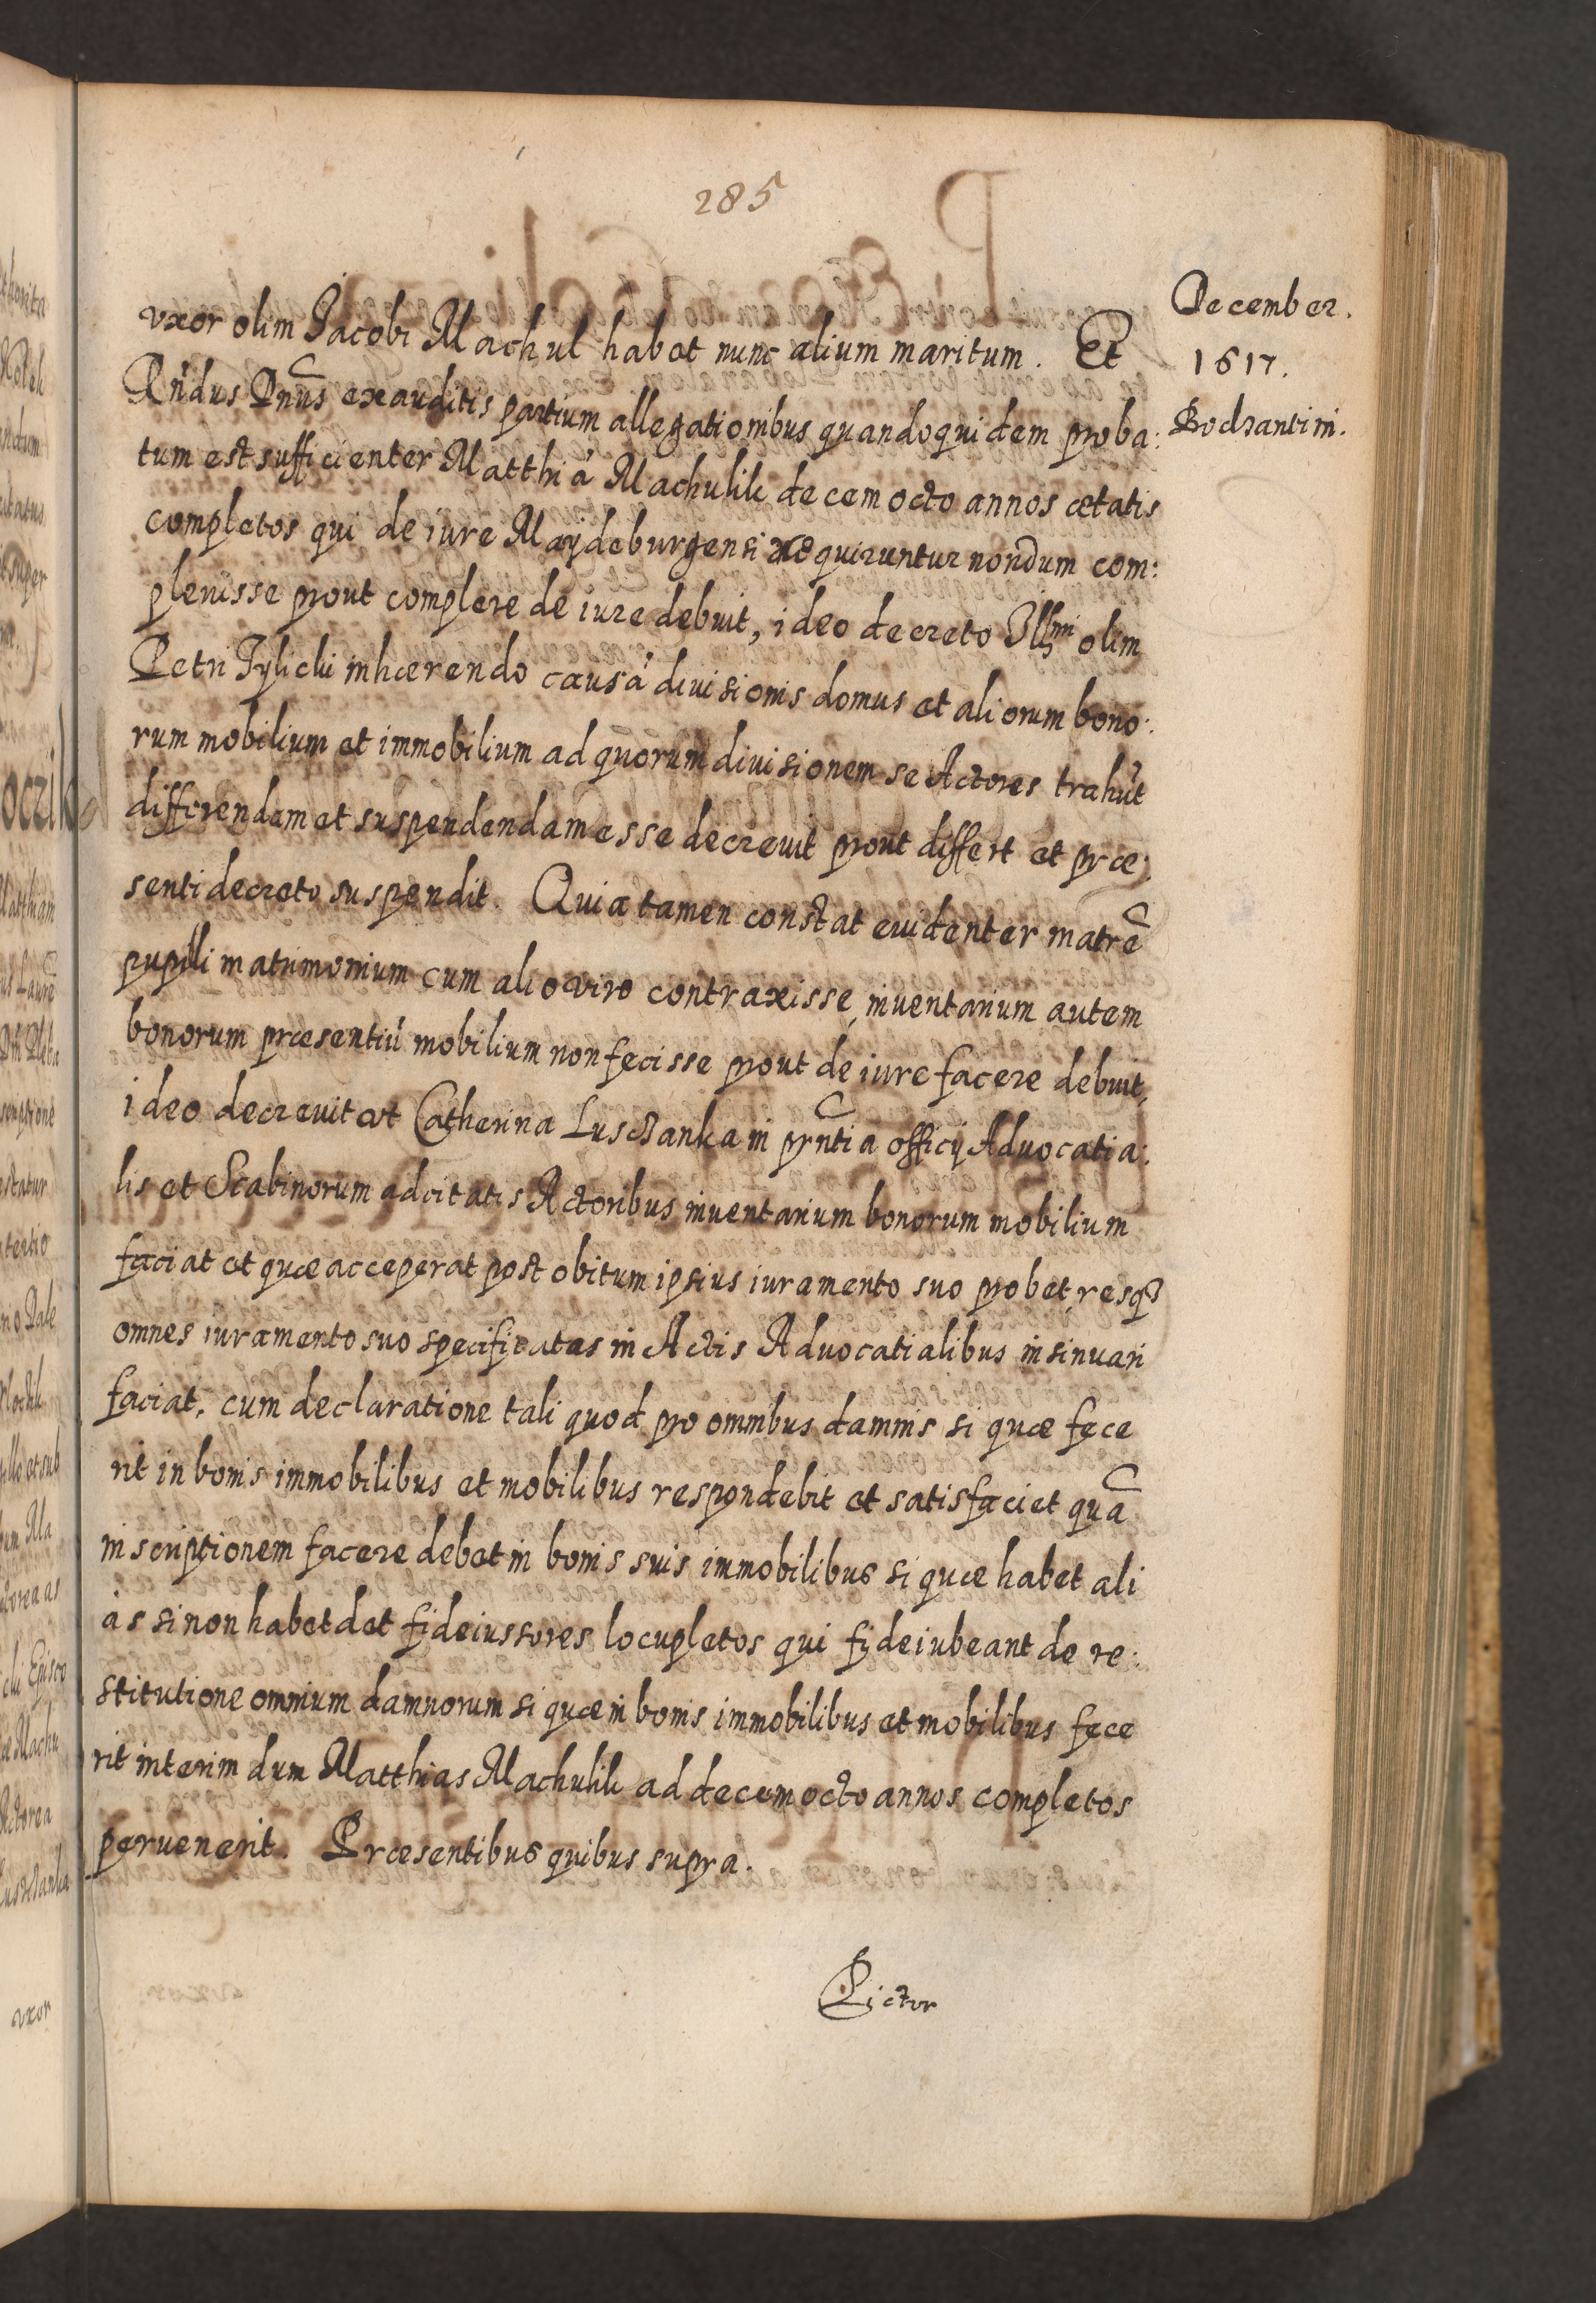 285
December.
1617.
Bodzantini.
vxor olim Jacobi Machul habet nunc alium maritum. Et
Rńdus Dnūs exauditis partium allegationibus quandoquidem proba:
tum est sufficienter Matthiá Machulik decem octo annos ætatis
completos qui de iure Maydeburgensi requiruntur nondum com:
pleuisse prout complere de iure debuit, ideo decreto Illmi olim
Petri Tylicki inhærendo causá diuisionis domus et aliorum bono:
rum mobilium et immobilium ad quorum diuisionem se Actores trahūt
differendam et suspendendam esse decreuit prout differt et præ:
senti decreto suspendit. Quia tamen constat euidenter matrē
pupilli matrimonium cum alio viro contraxisse, inuentarium autem
bonorum præsentiū mobilium non fecisse prout de iure facere debuit,
ideo decreuit vt Catherina Lusczanka in prn̄tia officij Aduocatia:
lis et Scabinorum adcitatis Actoribus inuentarium bonorum mobilium
faciat et quæ acceperat post obitum ipsius iuramento suo probet, resq3
omnes iuramento suo specificatas in Actis Aduocatialibus insinuari
faciat, cum declaratione tali quod pro omnibus damnis si quæ fece
rit in bonis immobilibus et mobilibus respondebit et satisfaciet quā
inscriptionem facere debet in bonis suis immobilibus si quæ habet ali
ás si non habet det fideiussores locupletos qui fideiubeant de re:
stitutione omnium damnorum si quæ in bonis immobilibus et mobilibus fece
rit interim dum Matthias Machulik ad decem octo annos completos
peruenerit. Præsentibus quibus supra.
Pictor